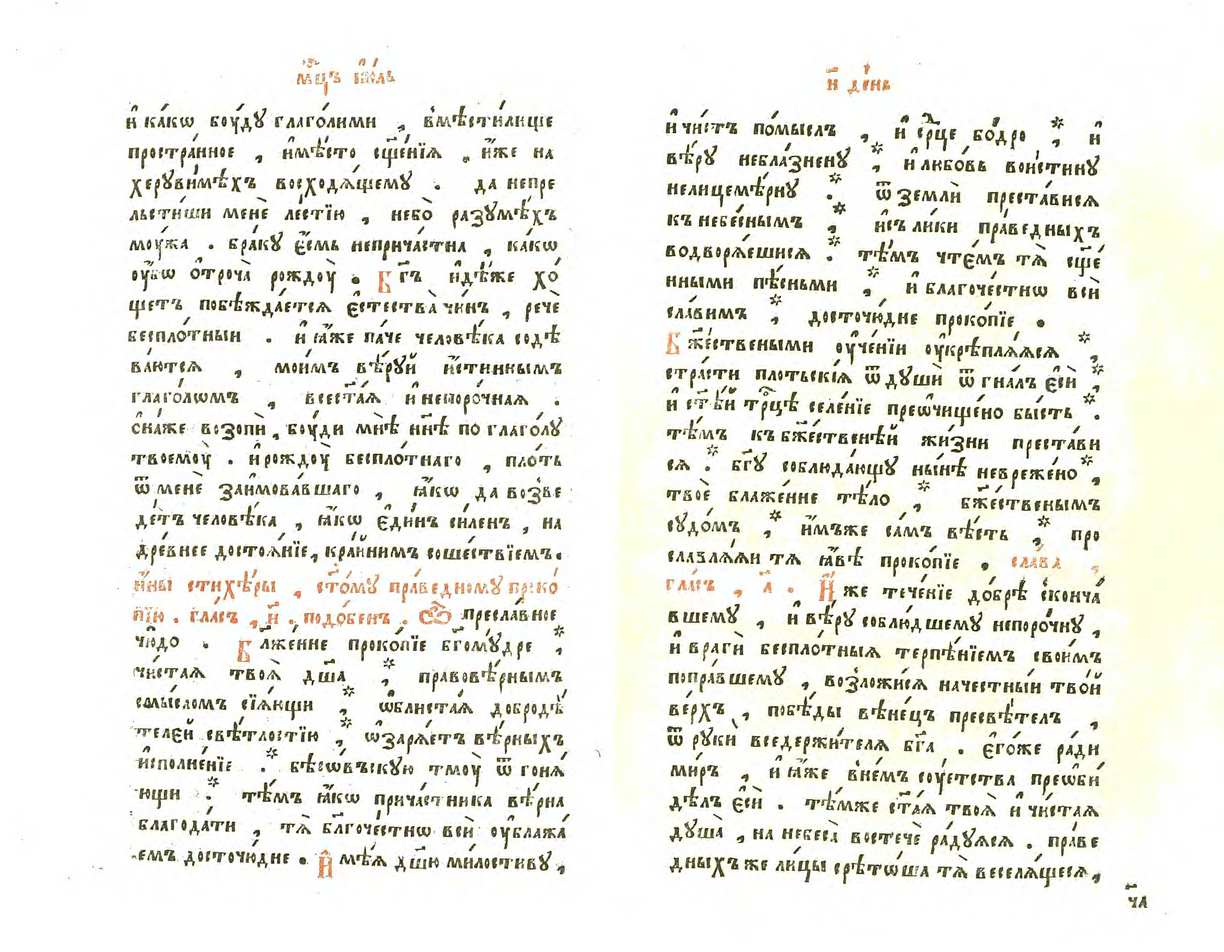 мц҃ъ і҆ю́ль
и҆ ка́кѡ боу́дꙋ глаго́лими , вмѣсти́лище
простра́нное , и҆мѣ́сто сщ҃е́нїѧ , и҆́же на
херꙋви́мѣхъ восходѧ́щемꙋ . да непре
льсти́ши менѐ ле́стїю , небо̀ разꙋмѣ́хъ
моу́жа . бра́кꙋ є҆́смь неприча́стна , ка́кѡ
оу҆́бѡ ѻ҆троча̀ рождоу̀ . Бг҃ъ и҆дѣ́же хо́
щетъ побѣжда́етсѧ є҆стества̀ чи́нъ , речѐ
беспло́тныи . и҆ ꙗ҆́же па́че человѣ́ка содѣ
ва́ютсѧ , мои̑мъ вѣ́рꙋй и҆́стиннымъ
глаго́лѡмъ , всест҃а́ѧ и҆ непоро́чнаѧ .
Ѻ҆на́же возопѝ , боу́ди мнѣ̀ нн҃ѣ по глаго́лꙋ
твоемоу̀ . и҆ рождоу̀ беспло́тнаго , пло́ть
ѿ менѐ заимова́вшаго , ꙗ҆́кѡ да возве
де́тъ человѣ́ка , ꙗ҆́кѡ є҆ди́нъ си́ленъ , на
дре́внее достоѧ́нїе , кра́йнимъ сошестві́емъ .
и҆́ны стихѣ́ры , ст҃о́мꙋ пра́ведномꙋ проко́
пїю . гла́съ , и҃ . подо́бенъ . Ѽ пресла́вное
чю́до . Бл҃же́нне проко́пїе бг҃омꙋ́дре *,
чи́стаѧ твоѧ̀ дш҃а *, правовѣ́рнымъ
смы́сломъ сїѧ́ющи *, ѡ҆блиста́ѧ добродѣ́
телей свѣ́тлостїю *, ѡ҆зарѧ́етъ вѣ́рныхъ
и҆сполне́нїе *. бѣсѡ́въскую тмоу̀ ѿ гонѧ́
ющи *. тѣ́мъ ꙗ҆́кѡ прича́стника вѣ́рна
благода́ти , тѧ̀ бл҃гоче́стнѡ всѝ оу҆блажа́
емъ досточю́дне . И҆мѣ́ѧ дш҃ю ми́лостивꙋ ,
и҃ де́нь
и҆ чи́стъ по́мыслъ , и҆ ср҃це бо́дро *, и҆
вѣ́рꙋ небла́зненꙋ *, и҆ любо́вь вои́стинꙋ
нелицемѣ́рнꙋ *. ѿ землѝ преста́висѧ
къ небе́снымъ *, и҆съ ли́ки пра́ведныхъ
водворѧ́ешисѧ *. тѣ́мъ чте́мъ тѧ̀ сщ҃е́
нными пѣ́сньми *, и҆ благоче́стнѡ всѝ
сла́вимъ *, досточю́дне проко́пїе .
Бж҃е́ствеными оу҆че́нїи оу҆крѣплѧ́ѧсѧ *,
стра́сти плотьскі́ѧ ѿ дꙋшѝ ѿ гна́лъ є҆сѝ *,
и҆ ст҃ѣ́й тр҃цѣ селе́нїе преѡчище́но бы́сть *.
тѣ́мъ къ бж҃е́ственѣй жи́зни преста́ви
сѧ *. бг҃ꙋ соблюда́ющꙋ ны́нѣ невреже́но *,
твоѐ блаже́нне тѣ́ло *, бж҃е́ственымъ
сꙋдо́мъ *, и҆́мъже са́мъ вѣ́сть *, про
славлѧ́ѧи тѧ̀ ꙗ҆́вѣ проко́пїе . сла́ва ,
гла́съ , а҃ . И҆́же тече́нїе до́брѣ сконча́
вшемꙋ , и҆ вѣ́рꙋ соблю́дшемꙋ непоро́чнꙋ ,
и҆ врагѝ беспло́тныѧ терпѣ́нїемъ свои́мъ
попра́вшемꙋ , возложи́сѧ на че́стный тво́й
ве́рхъ , побѣ́ды вѣне́цъ пресвѣ́телъ ,
ѿ рꙋкѝ вседержи́телѧ бг҃а . є҆го́же ра́ди
ми́ръ , и҆ ꙗ҆́же в не́мъ соу́етства преѡби́
дѣлъ є҆сѝ . тѣ́мже ст҃а́ѧ твоѧ̀ и҆ чи́стаѧ
дꙋша̀ , на небеса̀ востечѐ ра́дꙋѧсѧ . пра́ве
дныхъ же ли́цы срѣ́тѡша тѧ̀ веселѧ́щесѧ ,
ч҃а